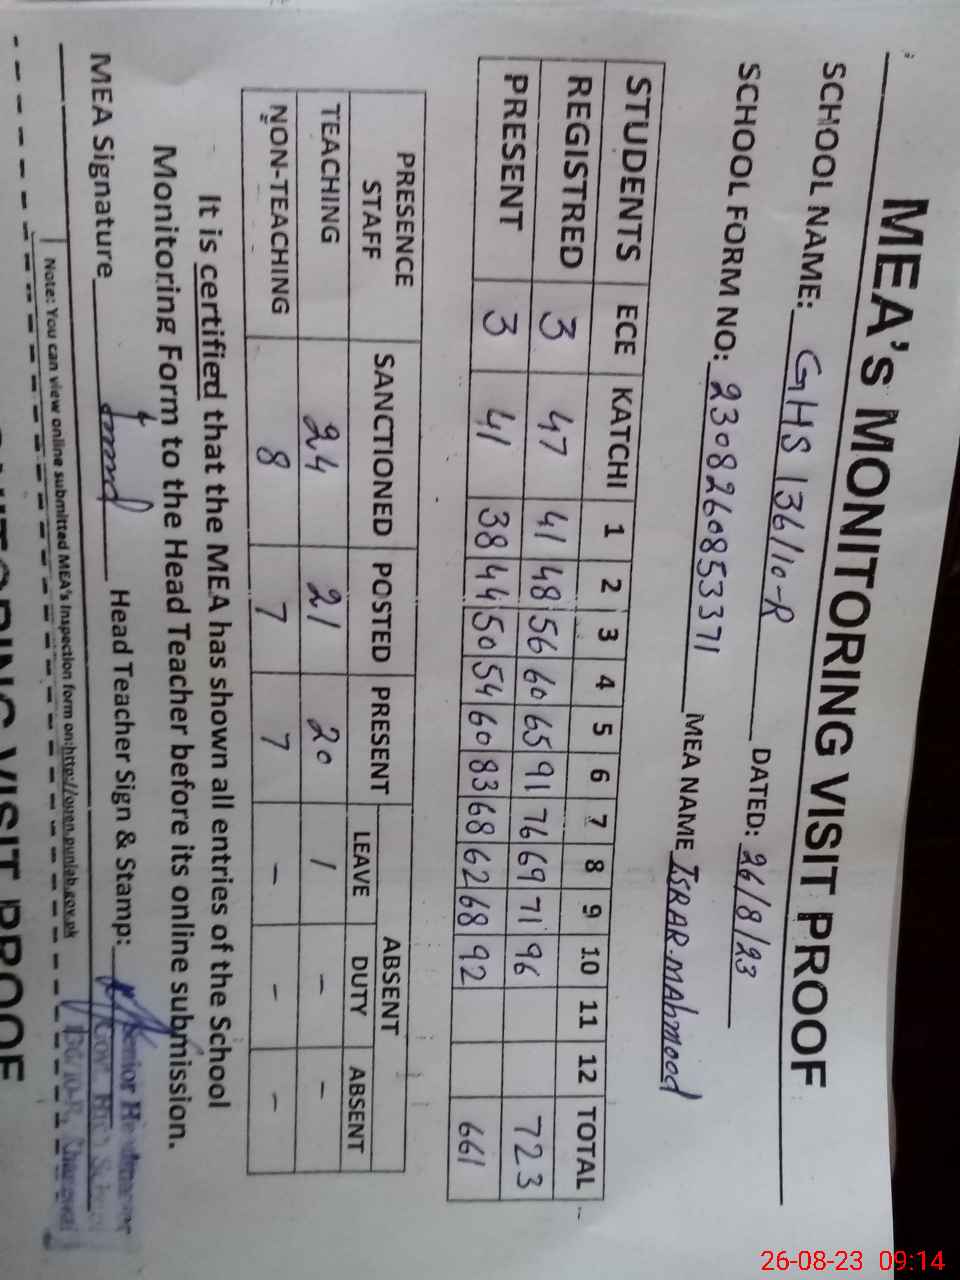 MEA's MONITORING VISIT PROOF
SCHOOL NAME: GHS 136/10-R DATED: 26/8/23
SCHOOL FORM NO: 2308260853371 MEA NAME ISRAR MAhmood
STUDENTS ECE KATCHI 1 2 3 4 5 6 7 8 9 10 11 12 TOTAL
REGISTRED 3 47 41 48 56 60 65 91 76 69 71 96 723
PRESENT 3 41 38 44 50 54 60 83 68 62 68 92 661
PRESENCE STAFF SANCTIONED POSTED PRESENT ABSENT
LEAVE DUTY ABSENT
TEACHING 24 21 20 1 - -
NON-TEACHING 8 7 7 - - -
It is certified that the MEA has shown all entries of the School
Monitoring Form to the Head Teacher before its online submission.
MEA Signature Head Teacher Sign & Stamp:
Senior Headmaster
Govt. High School
136/10-R,
Note: You can view online submitted MEA's Inspection form on:http://open.punjab.gov.pk
VISIT PROOF
26-08-23 09:14